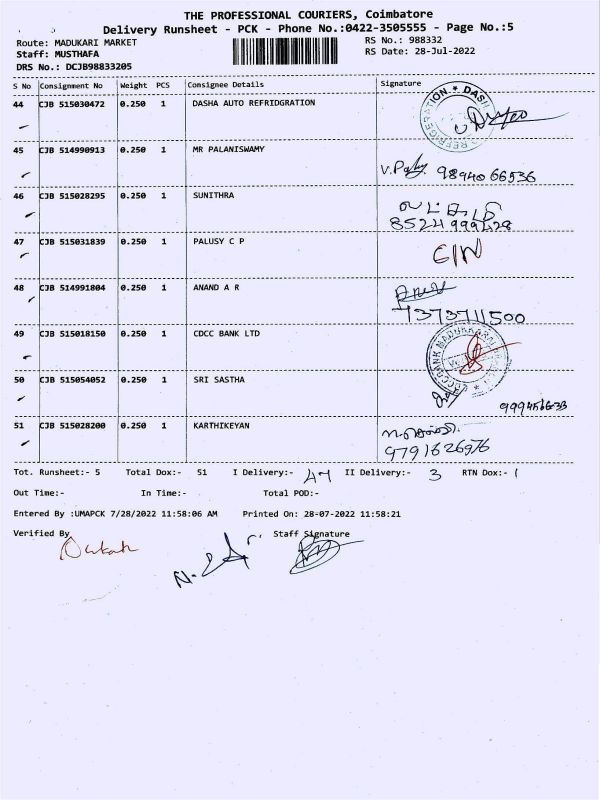 THE PROFESSIONAL COURIERS, Coimbatore
Delivery Runsheet - PCK - Phone No.:0422-3505555 - Page No.:5
Route: MADUKARI MARKET
RS No.: 988332
Staff: MUSTHAFA
RS Date: 28-Jul-2022
DRS No.: DCJB98833205
S No Consignment No Weight PCS Consignee Details Signature
44 CJB 515030472 0.250 1 DASHA AUTO REFRIDGRATION
45 CJB 514990913 0.250 1 MR PALANISWAMY
9894066536
46 CJB 515028295 0.250 1 SUNITHRA
8524999428
47 CJB 515031839 0.250 1 PALUSY C P
48 CJB 514991804 0.250 1 ANAND A R
7373711500
49 CJB 515018150 0.250 1 CDCC BANK LTD
50 CJB 515054052 0.250 1 SRI SASTHA
51 CJB 515028200 0.250 1 KARTHIKEYAN
9791626976
Tot. Runsheet:- 5 Total Dox:- 51 I Delivery:- 47 II Delivery:- 3 RTN Dox:- 1
Out Time:- In Time:- Total POD:-
Entered By :UMAPCK 7/28/2022 11:58:06 AM Printed On: 28-07-2022 11:58:21
Verified By Staff Signature